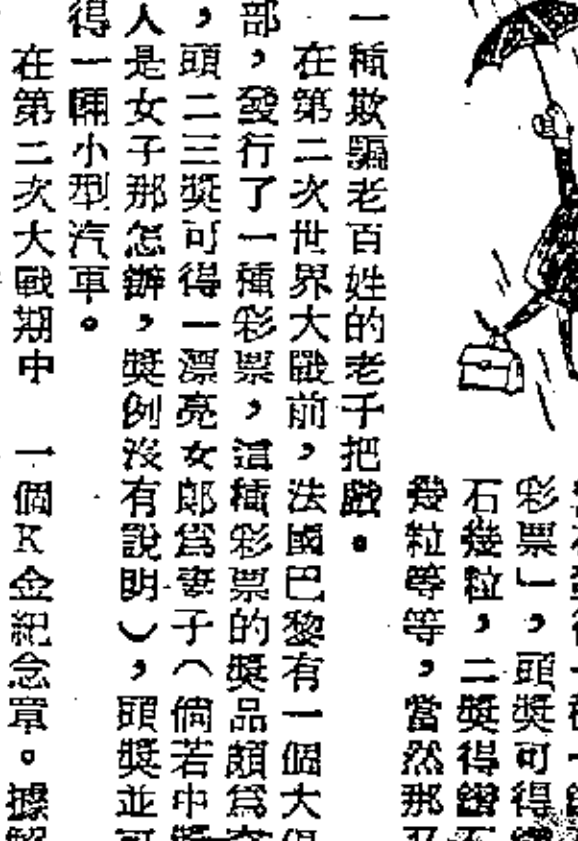 彩票」，頭獎可得
石幾粒，二獎得鑽石
幾粒等等，當然那又
一種欺騙老百姓的老子把戲。
在第二次世界大戰前，法國巴黎有一個大俱
部，發行了一種彩票，這種彩票的獎品頗爲奇
，頭二三獎可得一漂亮女郎爲妻子（倘若中獎
人是女子那怎辦，獎例沒有說明），頭獎並可
得一輛小型汽車。
在第二次大戰期中 一個K金紀念章。據